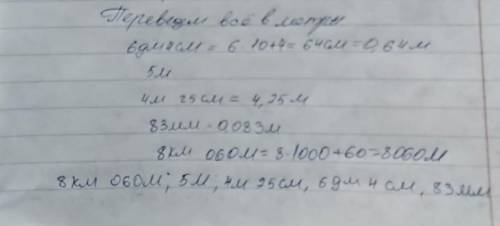 Переведём всё в метры
6дм4см = 6·10+4=64см=0,64м
5м
4м 25см = 4,25м
83мм=0,083м
8км 060м=8·1000+60=8060м
8км 060м; 5м; 4м 25см, 6дм 4см, 83мм